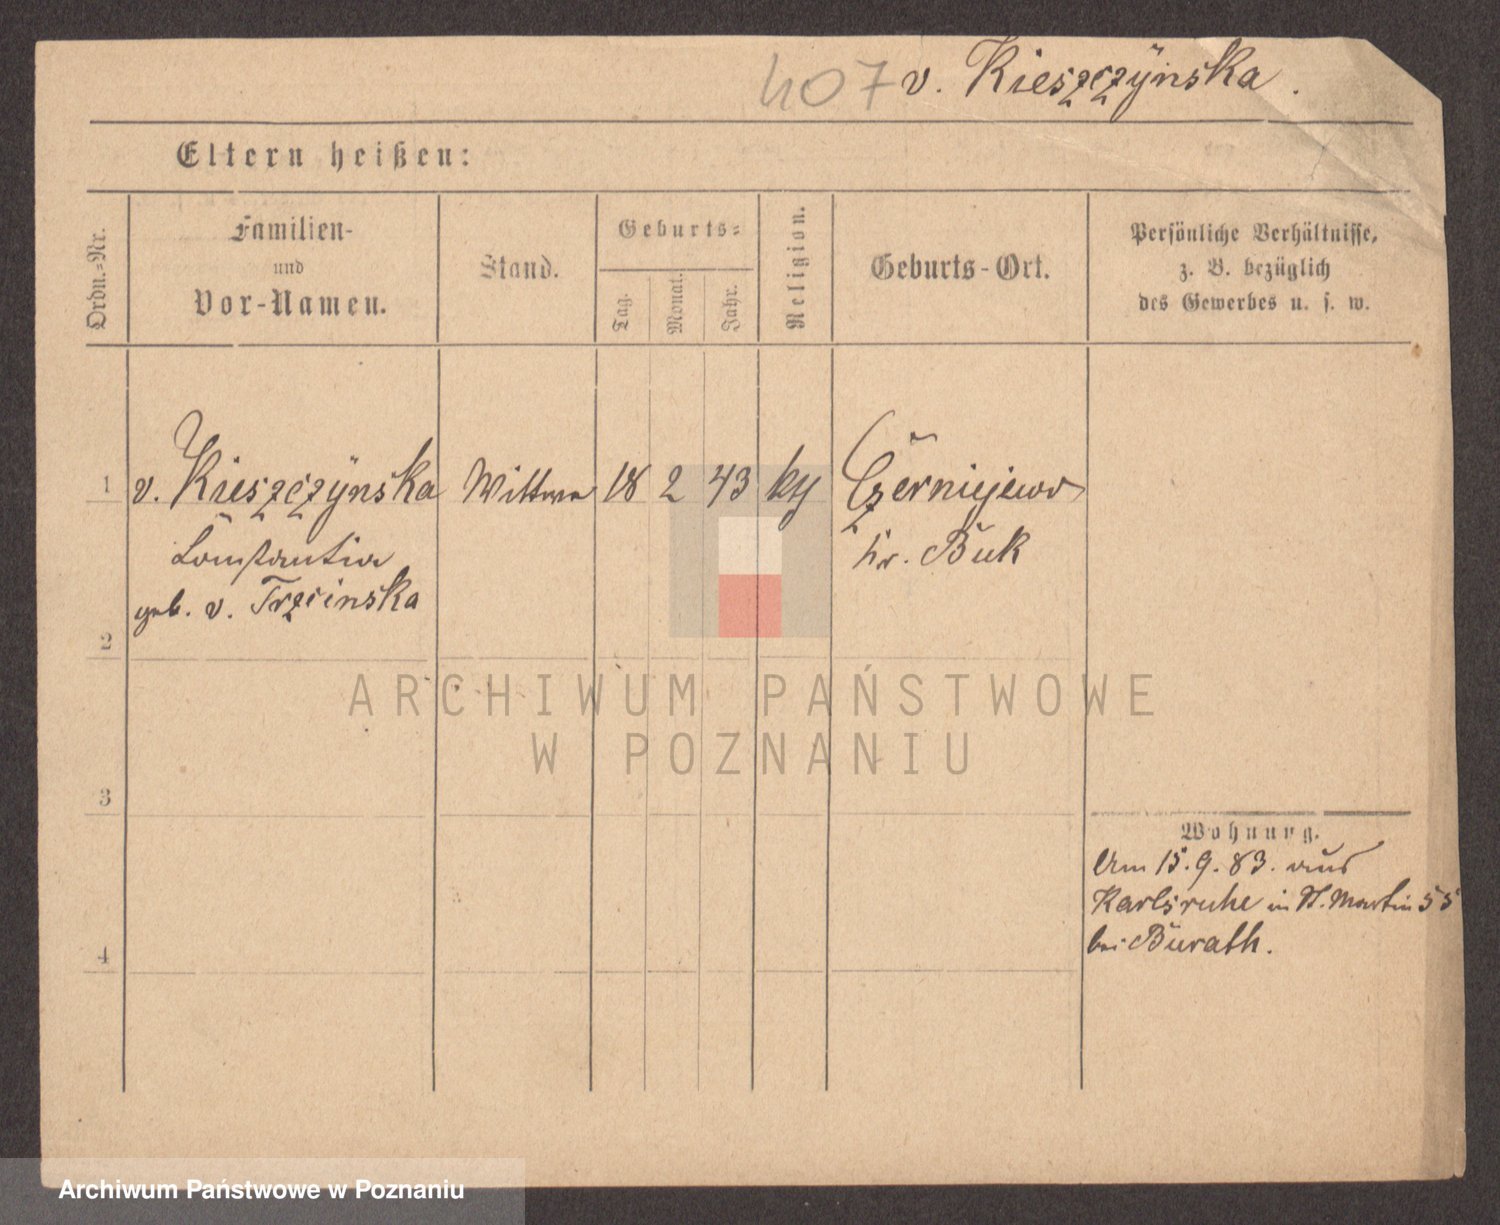 407 v. Kieszczynska.
Eltern heißen:
Ordn.-Nr.
Familien-
und
Vor-Namen.
Stand.
Geburts-
Tag.
Monat.
Jahr.
Religion.
Geburts-Ort.
Persönliche Verhältnisse,
z. B. bezüglich
des Gewerbes u. s. w.
1 v. Kieszczynska Wittwe 18 2 43 Czerniejewo
Constantia Kr. Buk
geb. v. Trzcinska
2
3
4
Wohnung.
Am 15.9.83. aus
Karlsruhe in St. Martin 55
bei Burath.
ARCHIWUM PAŃSTWOWE
W POZNANIU
Archiwum Państwowe w Poznaniu